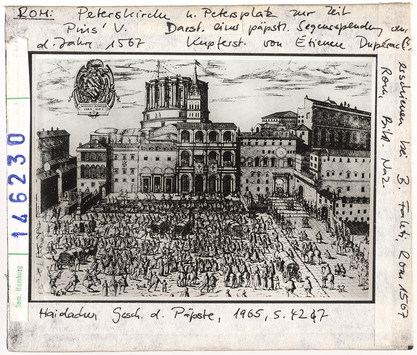 ROM: Peterskirche u. Petersplatz zur Zeit
Pius' V. Darst. eines päpstl. Segenspendung aus
d. Jahre 1567 Kupferst. von Étienne Dupérac.
erschienen bei B. Rom 1567
Rom, Bild Nr. 2
146230
Sem. Hamburg
Haidacher, Gesch. d. Päpste, 1965, S. 4247